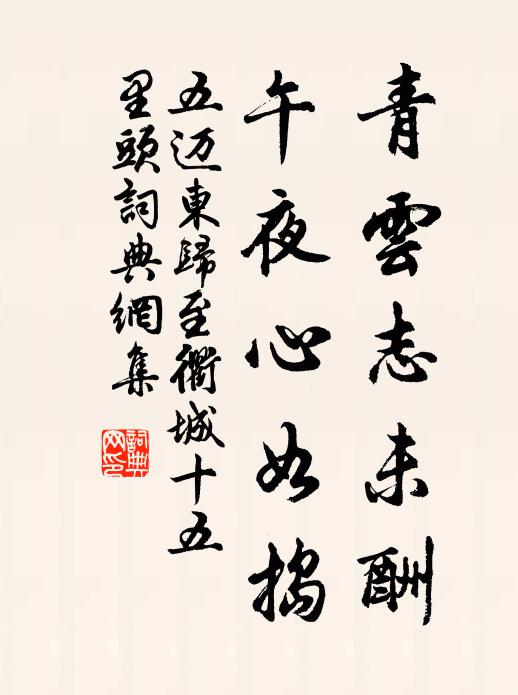 青雲志未酬
午夜心如搗
五迈東歸至衢城十五
里頭詞典網集
詞典
网印